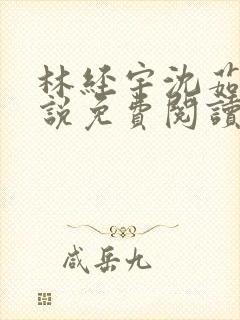 林経宇沈茹
說免費閱讀
咸岳九